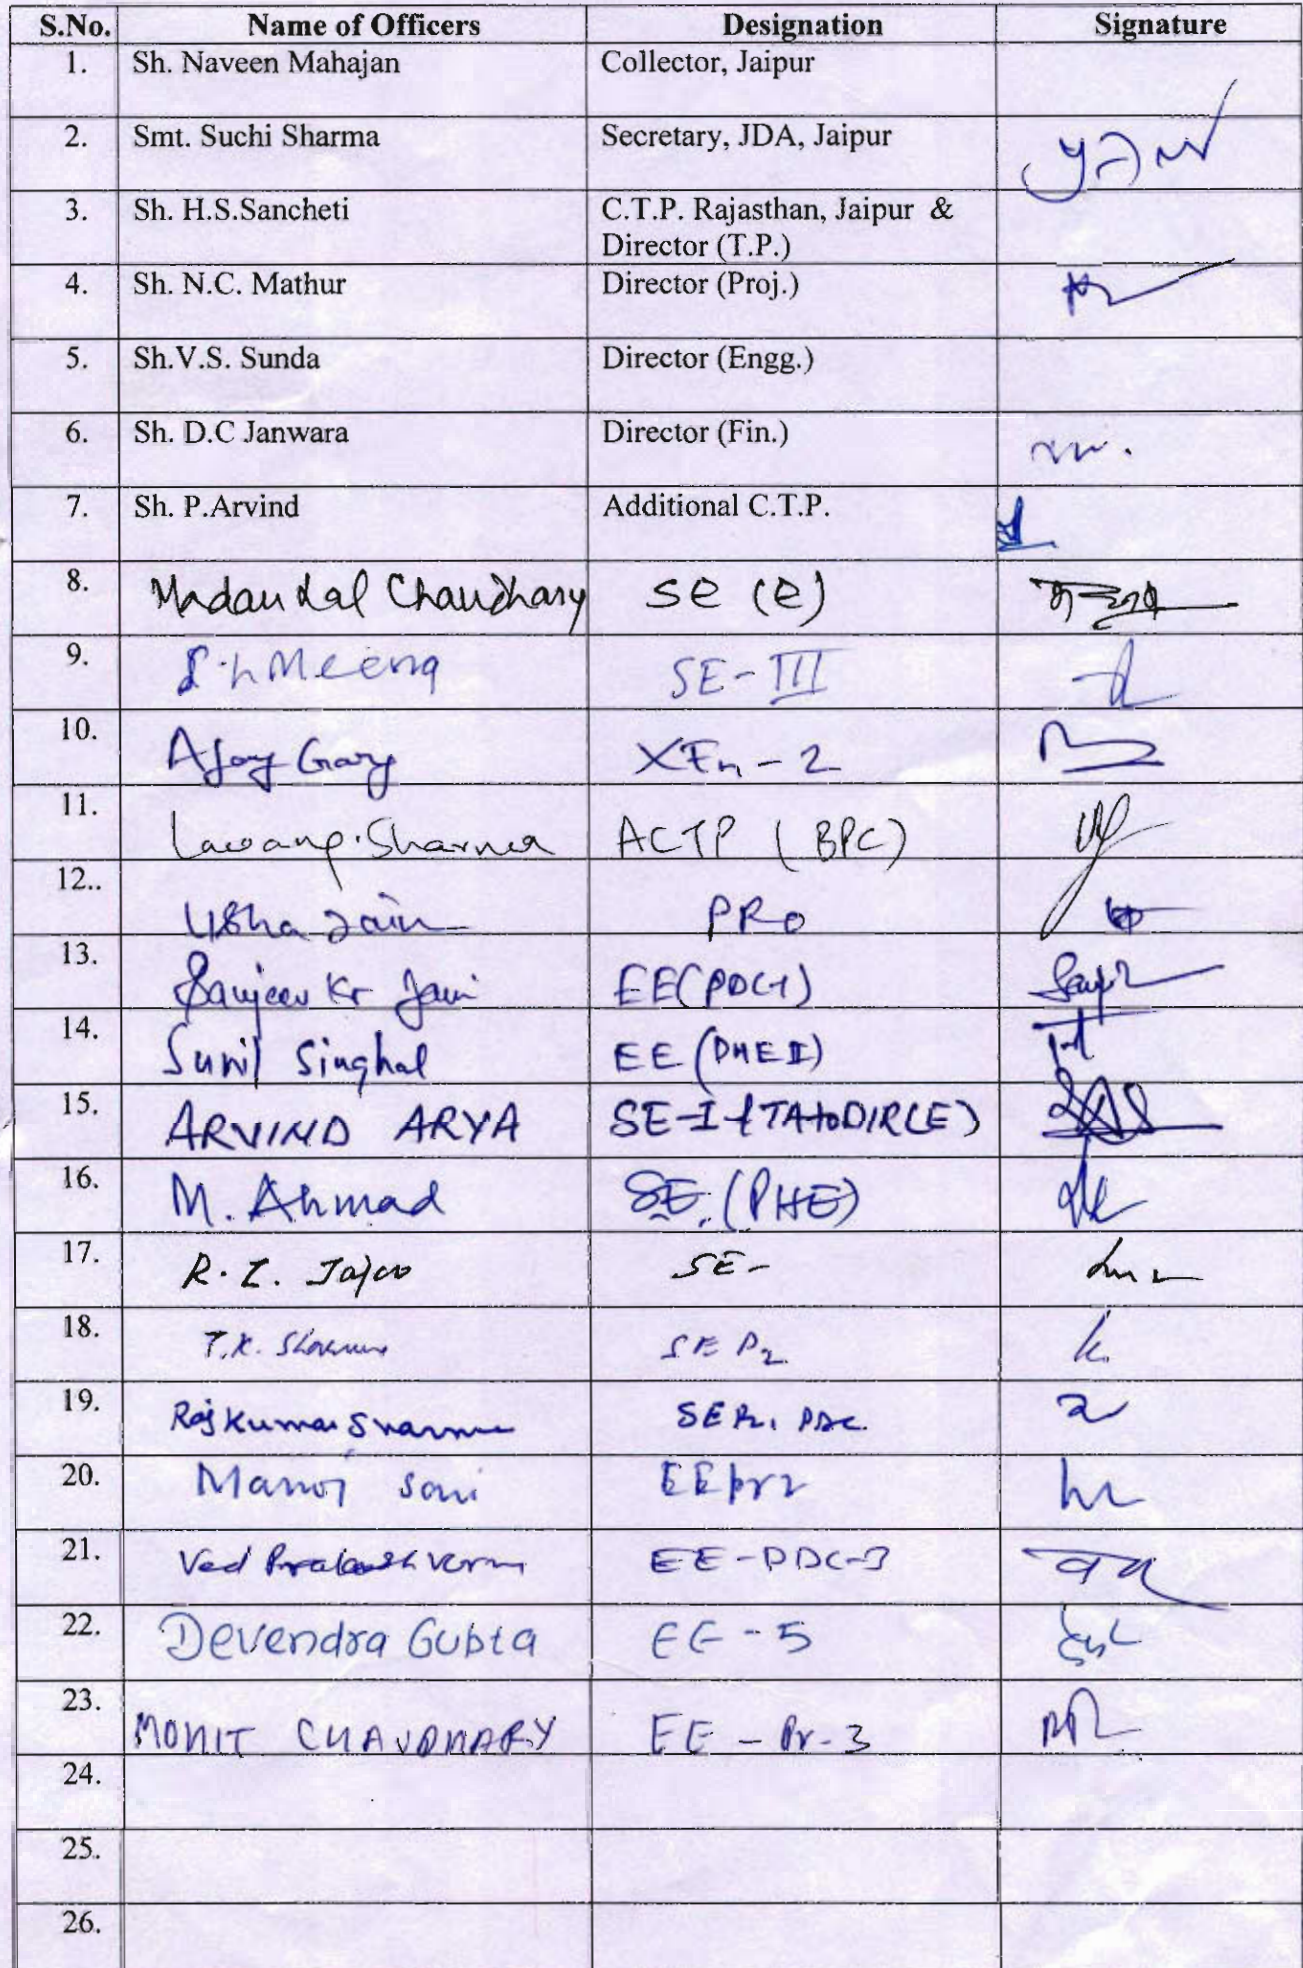 S.No. Name of Officers Designation Signature
1. Sh. Naveen Mahajan Collector, Jaipur
2. Smt. Suchi Sharma Secretary, JDA, Jaipur
3. Sh. H.S.Sancheti C.T.P. Rajasthan, Jaipur &
Director (T.P.)
4. Sh. N.C. Mathur Director (Proj.)
5. Sh.V.S. Sunda Director (Engg.)
6. Sh. D.C Janwara Director (Fin.)
7. Sh. P.Arvind Additional C.T.P.
8. Madan Lal Chaudhary SE (E)
9. Meena SE-III
10. Ajay Garg XEn-2
11. Lawang Sharma ACTP (BPC)
12.. Usha Jain PRO
13. Sanjeev Kr Jain EE
14. Sunil Singhal EE
15. ARVIND ARYA SE-I
16. M. Ahmad SE. (PHE)
17. R. SE-
18. T.K. Sharma SE P2
19. Raj Kumar Sharma
20. Manoj Soni
21. Ved Prakash Verma EE-PDC-3
22. Devendra Gupta EE-5
23. MOHIT CHAUDHARY EE-Pr-3
24.
25.
26.